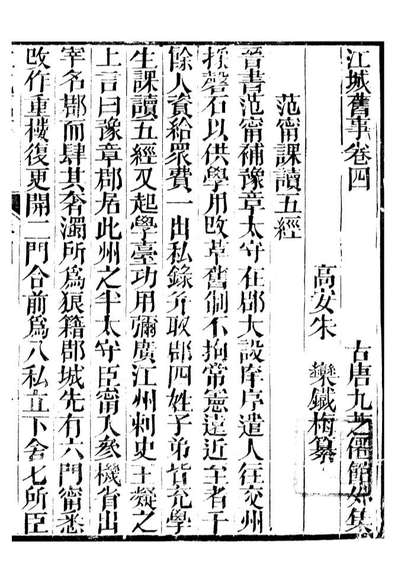 江城舊事卷四
古唐九芝僊館集
高安朱 欒鐵梅纂
范甯課讀五經
晉書范甯補豫章太守在郡大設庠序遣人往交州
採磬石以供學用改革舊制不拘常憲遠近至者千
餘人資給眾費一出私錄并取郡四姓子弟皆充學
生課讀五經又起學臺功用彌廣江州刺史王凝之
上言曰豫章郡居此州之半太守臣甯入參機省出
宰名郡而肆其奢濁所爲狼籍郡城先有六門甯悉
改作重樓復更開二門合前爲八私立下舍七所臣